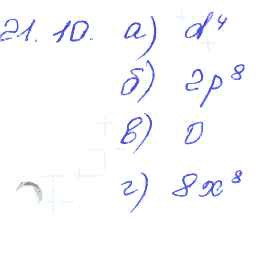 21.10. а) d⁴
б) 2p⁸
в) 0
г) 8x⁸